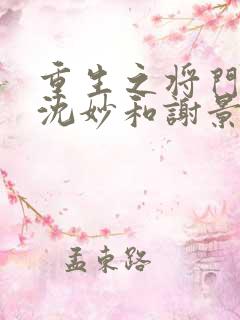 重生之将門
沈妙和謝景
孟束路